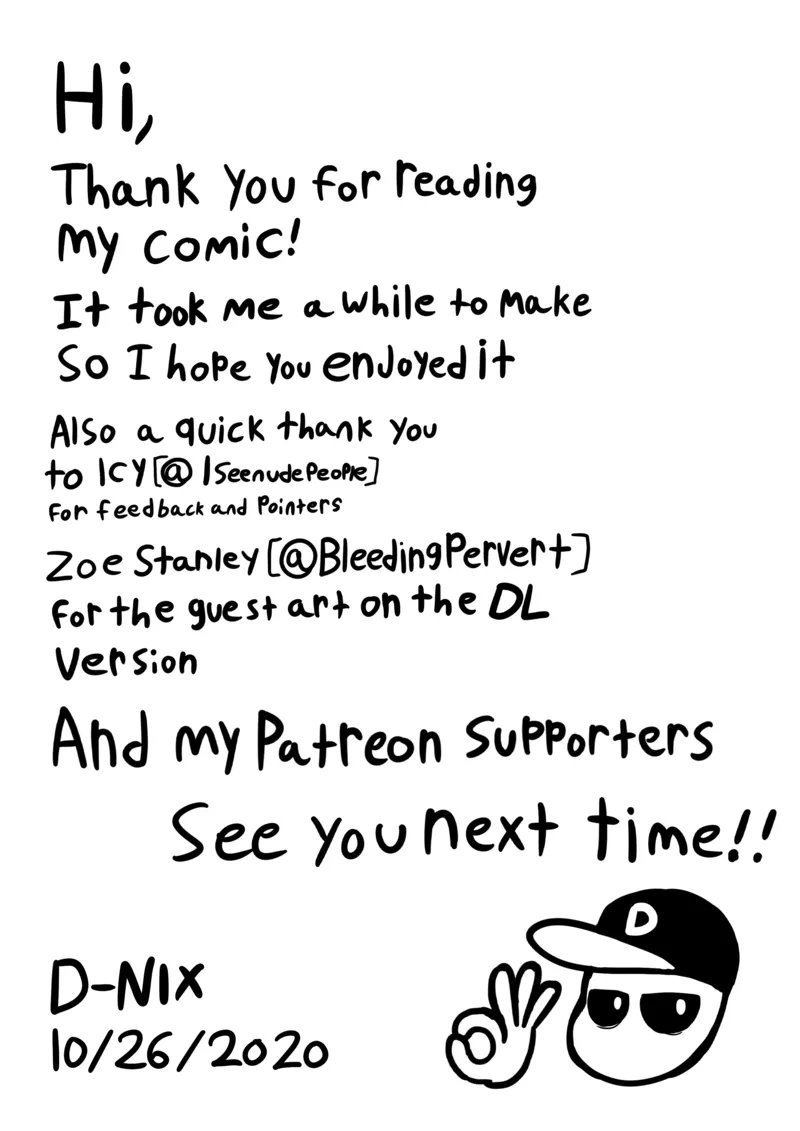 Hi,
Thank you for reading
my comic!
It took me a while to make
So I hope you enjoyed it
Also a quick thank you
to ICY[@ISeenudepeople]
for feedback and pointers
Zoe Stanley[@BleedingPervert]
for the guest art on the DL
Version
And my Patreon supporters
See you next time!!
D
D-NIX
10/26/2020